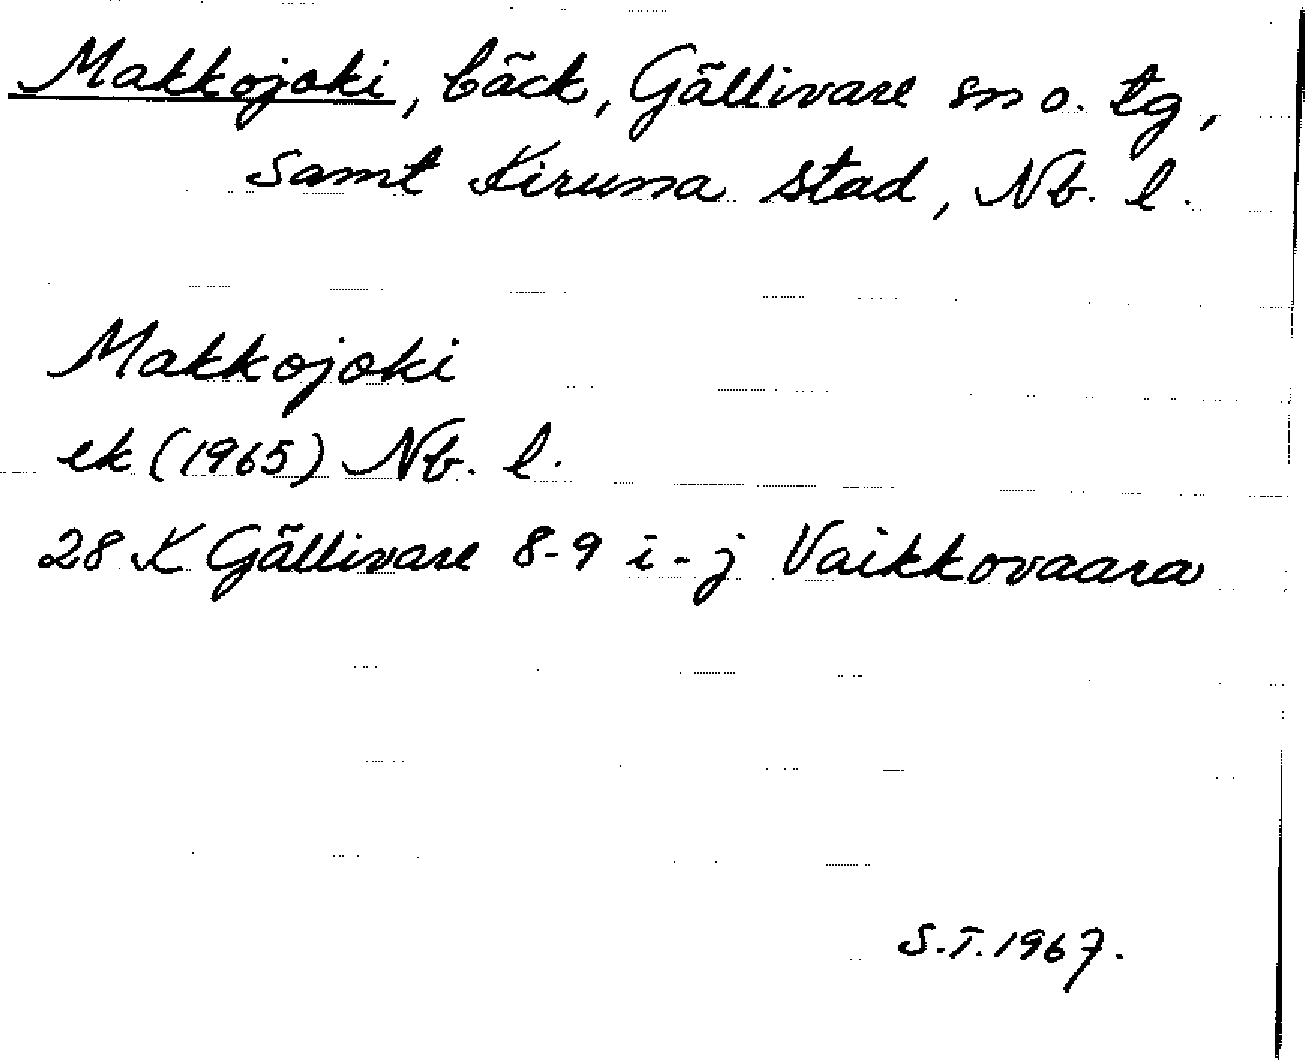 Makkojoki, bäck, Gällivare sn o. tg,
samt Kiruna stad, Nb. l.
Makkojoki
ek (1965) Nb. l.
28 K Gällivare 8-9 i-j Vaikkovaara
S.T. 1967.